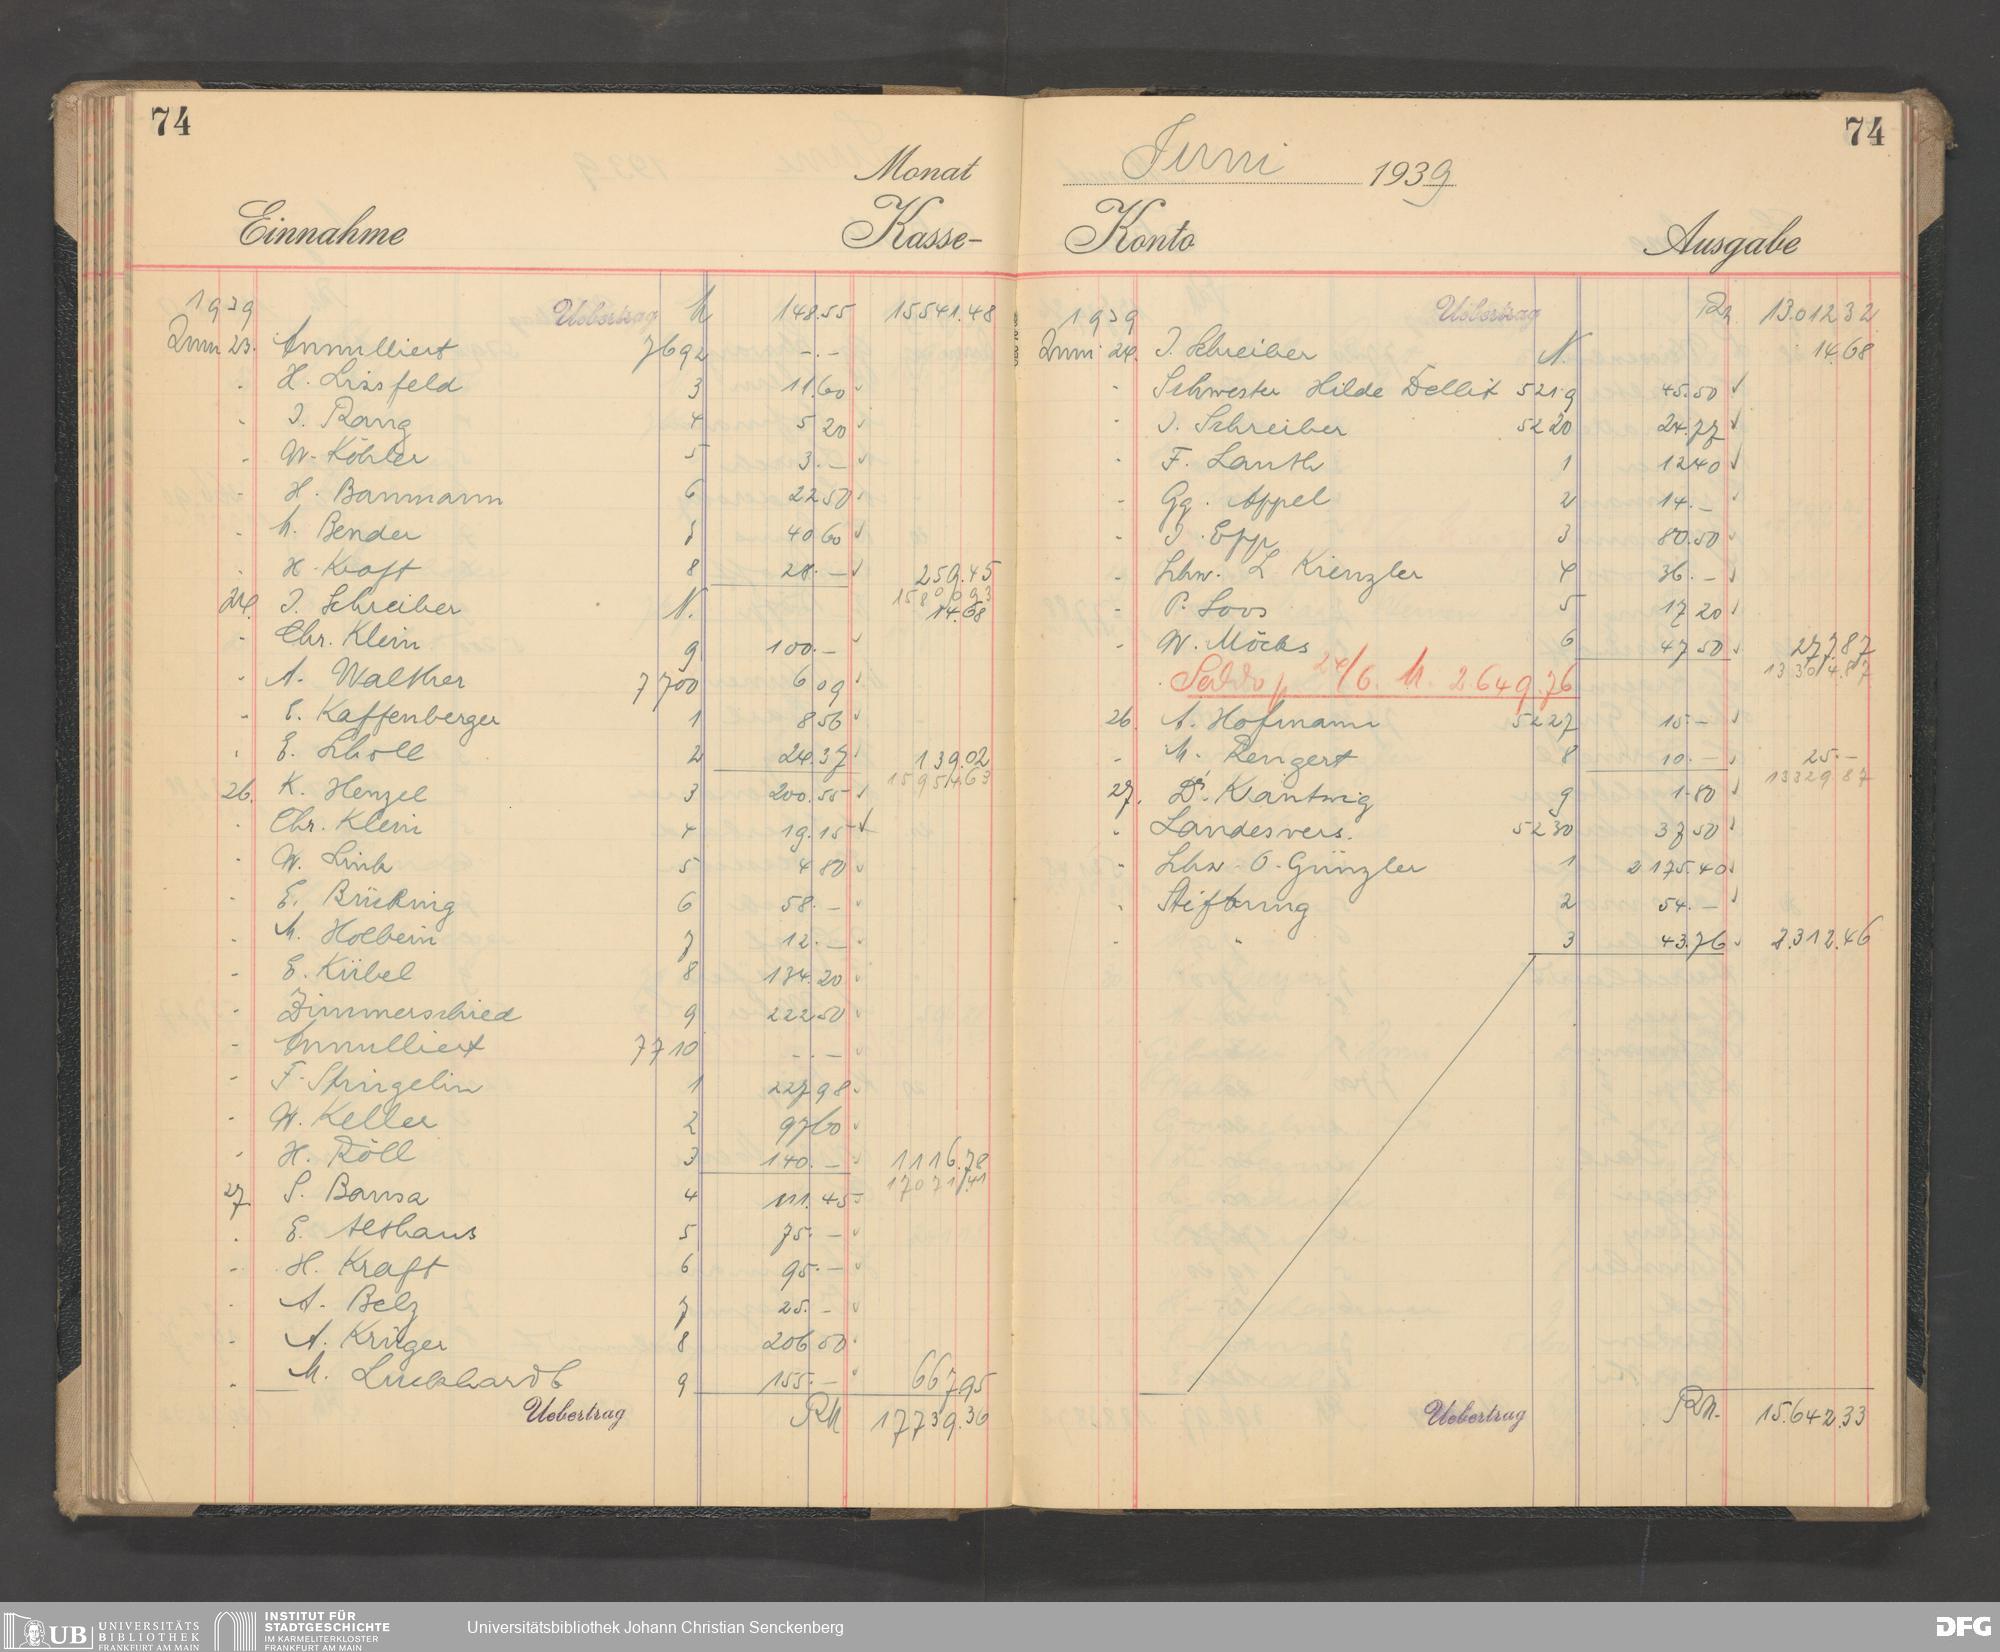 74
Monat
Einnahme Kasse-
1939 Uebertrag M 148.55 15541.48
Juni 23. Annulliert 7692 -.-
- H. Lissfeld 3 11.60
- J. Rang 4 5 20
- W. Köhler 5 3.-
- H. Baumann 6 22 50
- M. Bender 7 40 60
- H. Kraft 8 28.- 259.45
15800 93
24. J. Schreiber N. 14.68
- Chr. Klein 9 100.-
- A. Walther 7700 6 09
- E. Kaffenberger 1 8 56
- E. Scholl 2 24.37 139.02
15954.63
26. K. Henzel 3 200.55
- Chr. Klein 4 19.15
- W. Link 5 4 80
- E. Brücking 6 58.-
- M. Holbein 7 12.-
- E. Kübel 8 134.20
- Zimmerschied 9 222 50
- Annulliert 7710 -.-
- F. Stringelin 1 227 98
- W. Keller 2 97 60
- H. Röll 3 140.- 1116.78
17071.41
27. S. Bansa 4 111.45
- E. Althaus 5 75.-
- H. Kraft 6 95.-
- A. Belz 7 25.-
- A. Krüger 8 206 50
- M. Luckhardt 9 155.- 667.95
Uebertrag RM 17739.36
74
Juni 1939
Konto Ausgabe
1939 Uebertrag RM 13.012 32
Juni 24. J. Schreiber N. 14.68
- Schwester Hilde Dellit 5219 45.50
- J. Schreiber 5220 24.77
- F. Lauth 1 12 40
- Gg. Appel 2 14.-
- J. Epp 3 80.50
- Schw. L. Kienzler 4 36.-
- P. Loos 5 17 20
- W. Möcks 6 47 50 277.87
13304.87
Saldo p 24/6. M. 2.649.76
26. A. Hofmann 5227 15.-
- M. Rengert 8 10.- 25.-
13329 87
27. Dr. Kantwig 9 1.80
- Landesvers. 5230 37 50
- Schw. O. Günzler 1 2 175.40
- Stiftung 2 54.-
- " 3 43.76 2.312.46
Uebertrag RM. 15.642.33
UB UNIVERSITÄTS
BIBLIOTHEK
FRANKFURT AM MAIN
INSTITUT FÜR
STADTGESCHICHTE
IM KARMELITERKLOSTER
FRANKFURT AM MAIN
Universitätsbibliothek Johann Christian Senckenberg
DFG